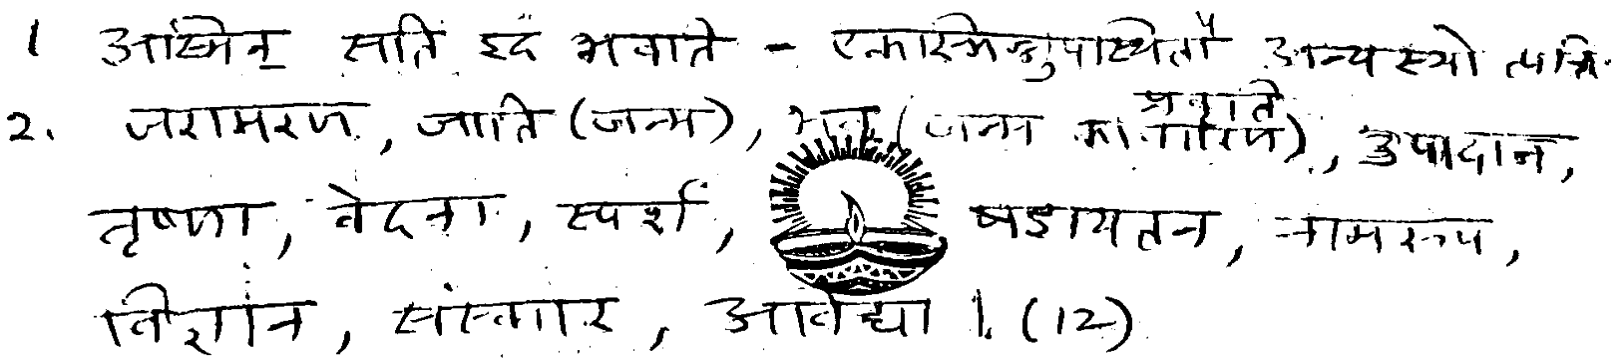 1 अस्मिन् सति इदं भवति - एकस्मिन्नुपस्थितौ अन्यस्यो त्पत्ति
2. जरामरण, जाति (जन्म), भव (जन्म का कारण), उपादान,
तृष्णा, वेदना, स्पर्श, षडायतन, नामरूप,
विज्ञान, संस्कार, अविद्या । (12)